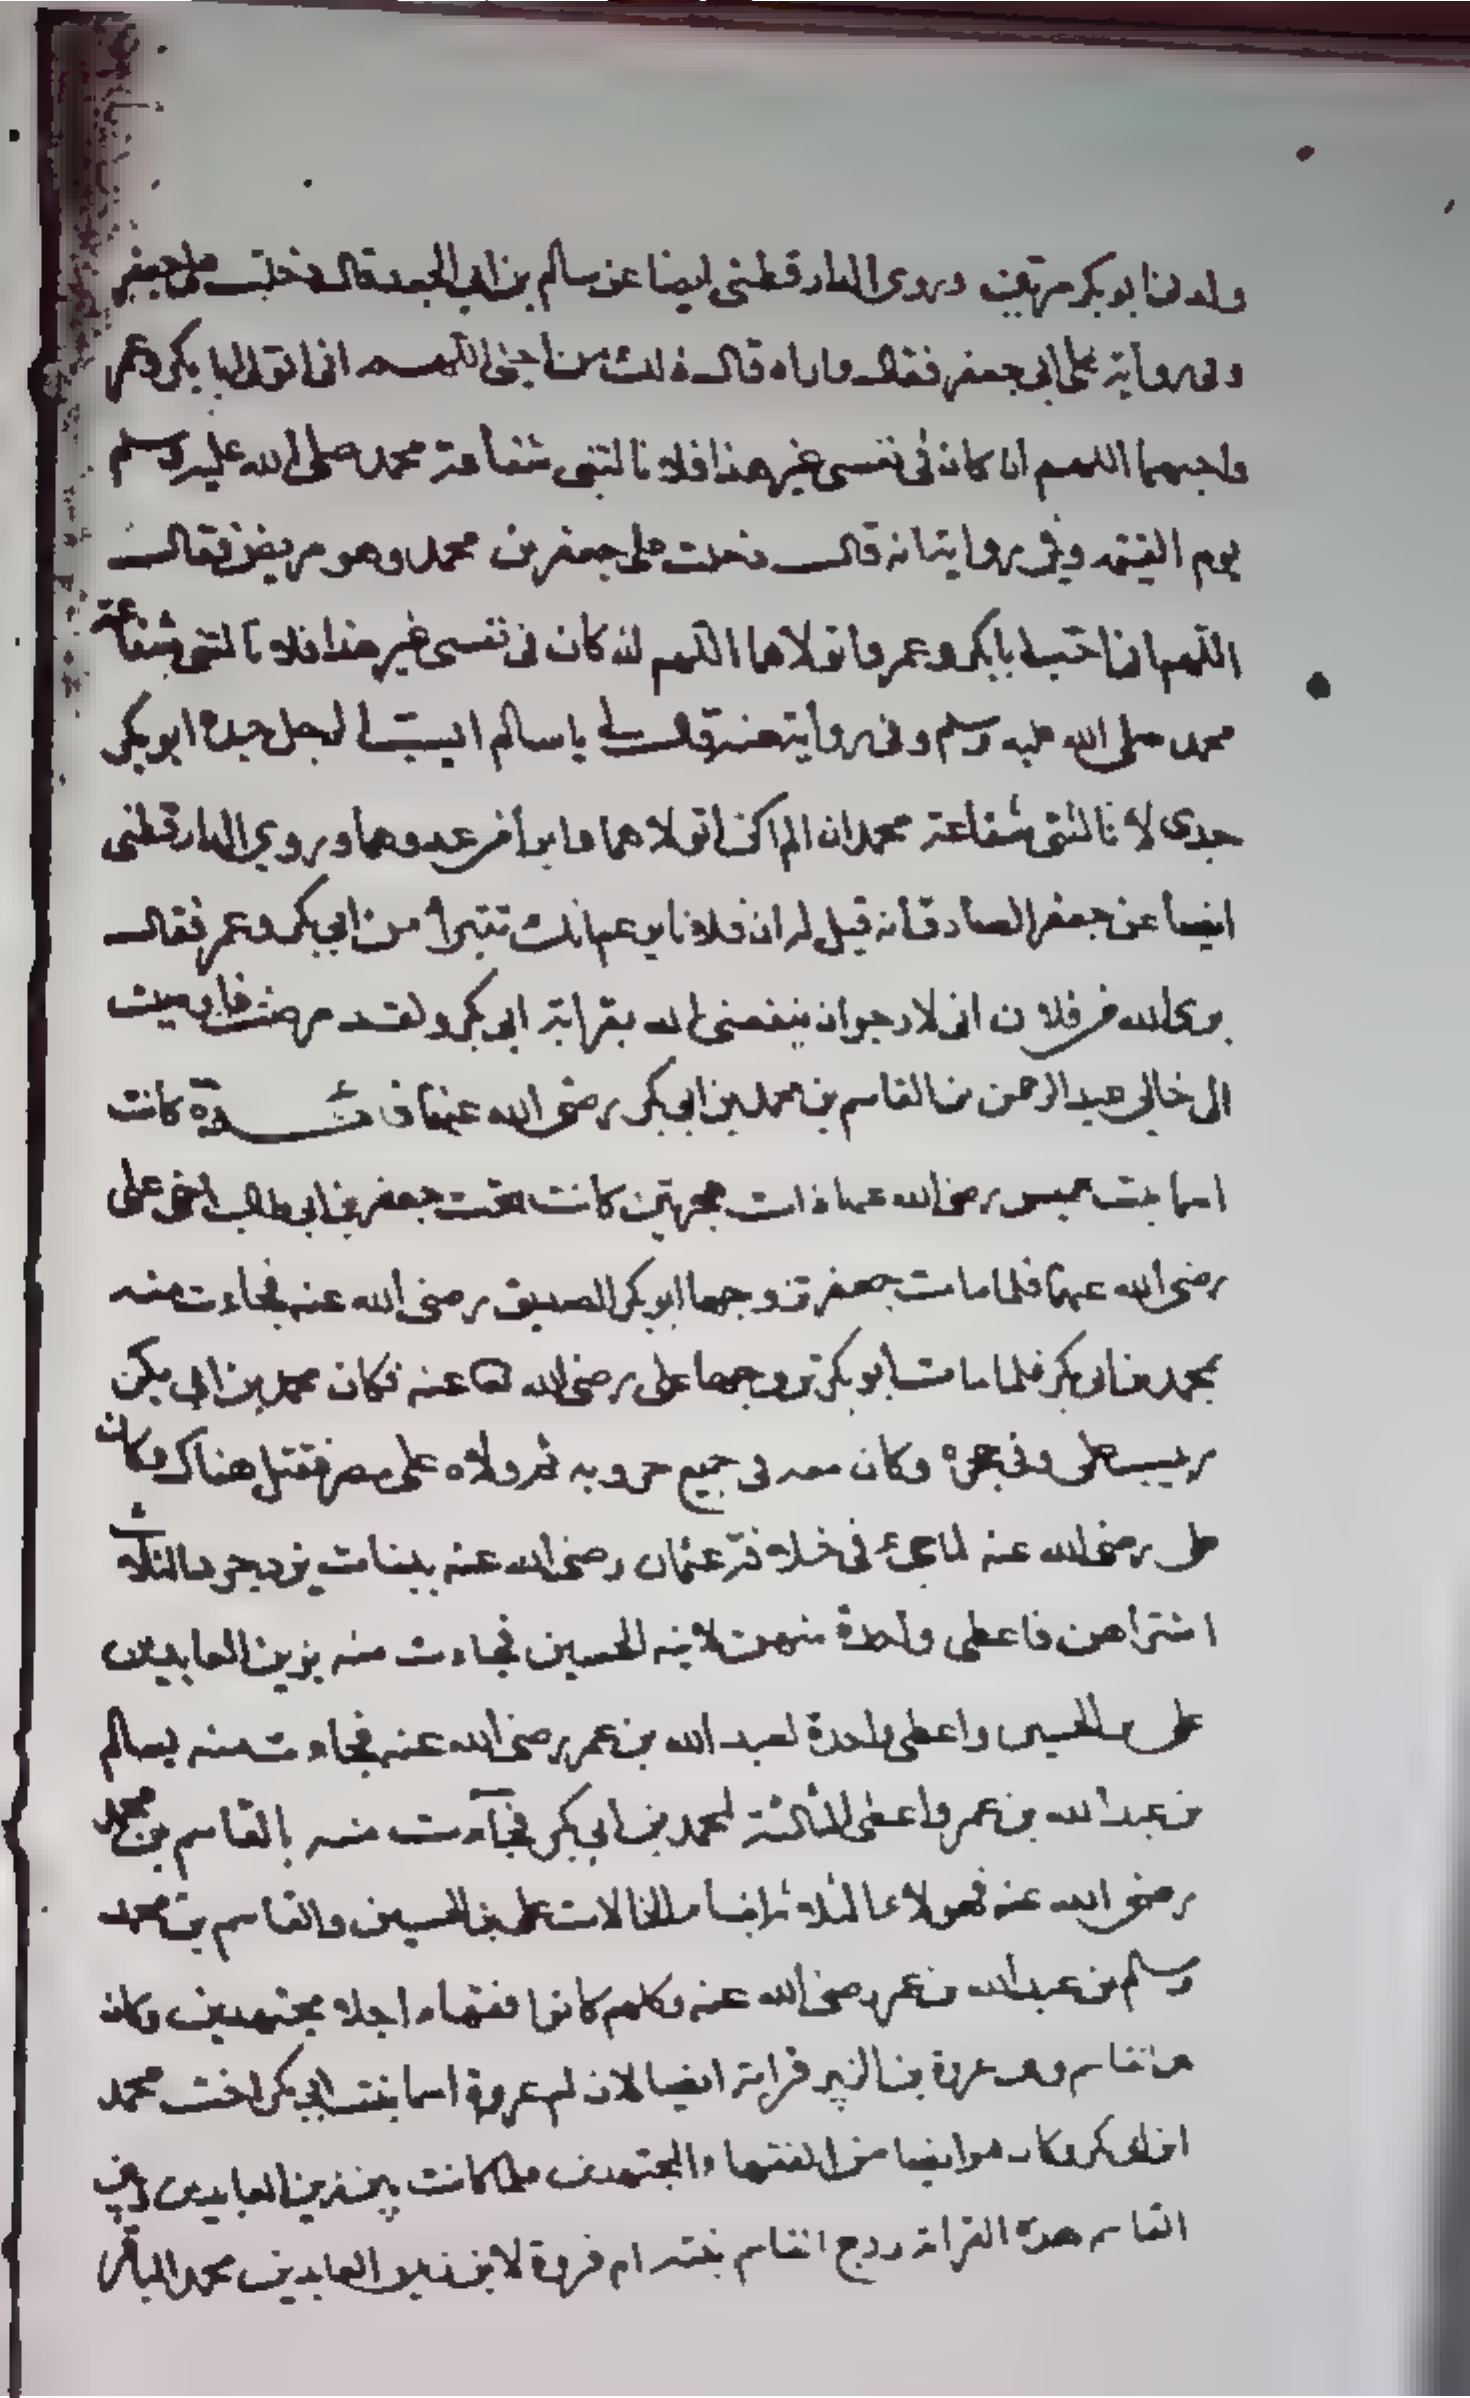 ولدنا ابو بكر مرتين وروى الدارقطنى ايضا عن سالم بن ابى الجعد قال دخلت على جعفر
وفى رواية على ابى جعفر فقال واراه قال ذلك من اجلى اللهم انى اتولى ابا بكر وعمر
واحبهما اللهم ان كان فى نفسى غير هذا فلا نالتنى شفاعة محمد صلى الله عليه وسلم
يوم القيمه وفى رواية انه قال دخلت على جعفر بن محمد وهو مريض فقال
اللهم انى احب ابا بكر وعمر واتولاهما اللهم ان كان فى نفسى غير هذا فلا نالتنى شفاعة
محمد صلى الله عليه وسلم وفى رواية عنه قال لى يا سالم ايسب الرجل جده ابو بكر
جدى لا نالتنى شفاعة محمد ان لم اكن اتولاهما وابرأ من عدوهما وروى الدارقطنى
ايضا عن جعفر الصادق أنه قيل له ان فلانا يزعم انك تتبرأ من ابى بكر وعمر فقال
برى الله من فلان انى لارجو ان ينفعنى الله بقرابة ابى بكر ولقد مرضت فاوصيت
الى خالى عبد الرحمن بن القاسم بن محمد بن ابى بكر رضى الله عنهم كانت
اسما بنت عميس رضى الله عنها ذات هجرتين كانت تحت جعفر بن ابى طالب اخى على
رضى الله عنهما فلما مات جعفر تزوجها ابو بكر الصديق رضى الله عنه فجاءت منه
بمحمد بن ابى بكر فلما مات أبو بكر تزوجها على رضى الله عنه فكان محمد بن ابى بكر
ربيب على وفى حجره وكان معه فى جميع حروبه ثم ولاه على مصر فقتل هناك وكان
على رضى الله عنه لما جئ فى خلافة عثمان رضى الله عنه ببنات يزدجرد الثلاث
اشتراهن فاعطى واحدة منهن لابنه الحسين فجاءت منه بزين العابدين
على بن الحسين واعطى واحدة لعبد الله بن عمر رضى الله عنه فجاءت منه بسالم
بن عبد الله بن عمر واعطى الثالثة لمحمد بن ابى بكر فجاءت منه بالقاسم بن محمد
رضى الله عنه فهولاء الثلاثة ابنا الخالات على بن الحسين والقاسم بن محمد
وسالم بن عبد الله بن عمر رضى الله عنه وكلهم كانوا فقهاء اجلا مجتهدين وكان
القاسم عروة بن الزبير قرابة ايضا لان ام عروة اسما بنت ابى بكر اخت محمد
ابن ابى بكر وكان هو ايضا من الفقهاء والمجتهدين فلما كانت بين زين العابدين وبين
القاسم هذه القرابة زوج القاسم بنته ام فروة لابن زين العابدين محمد الباقر